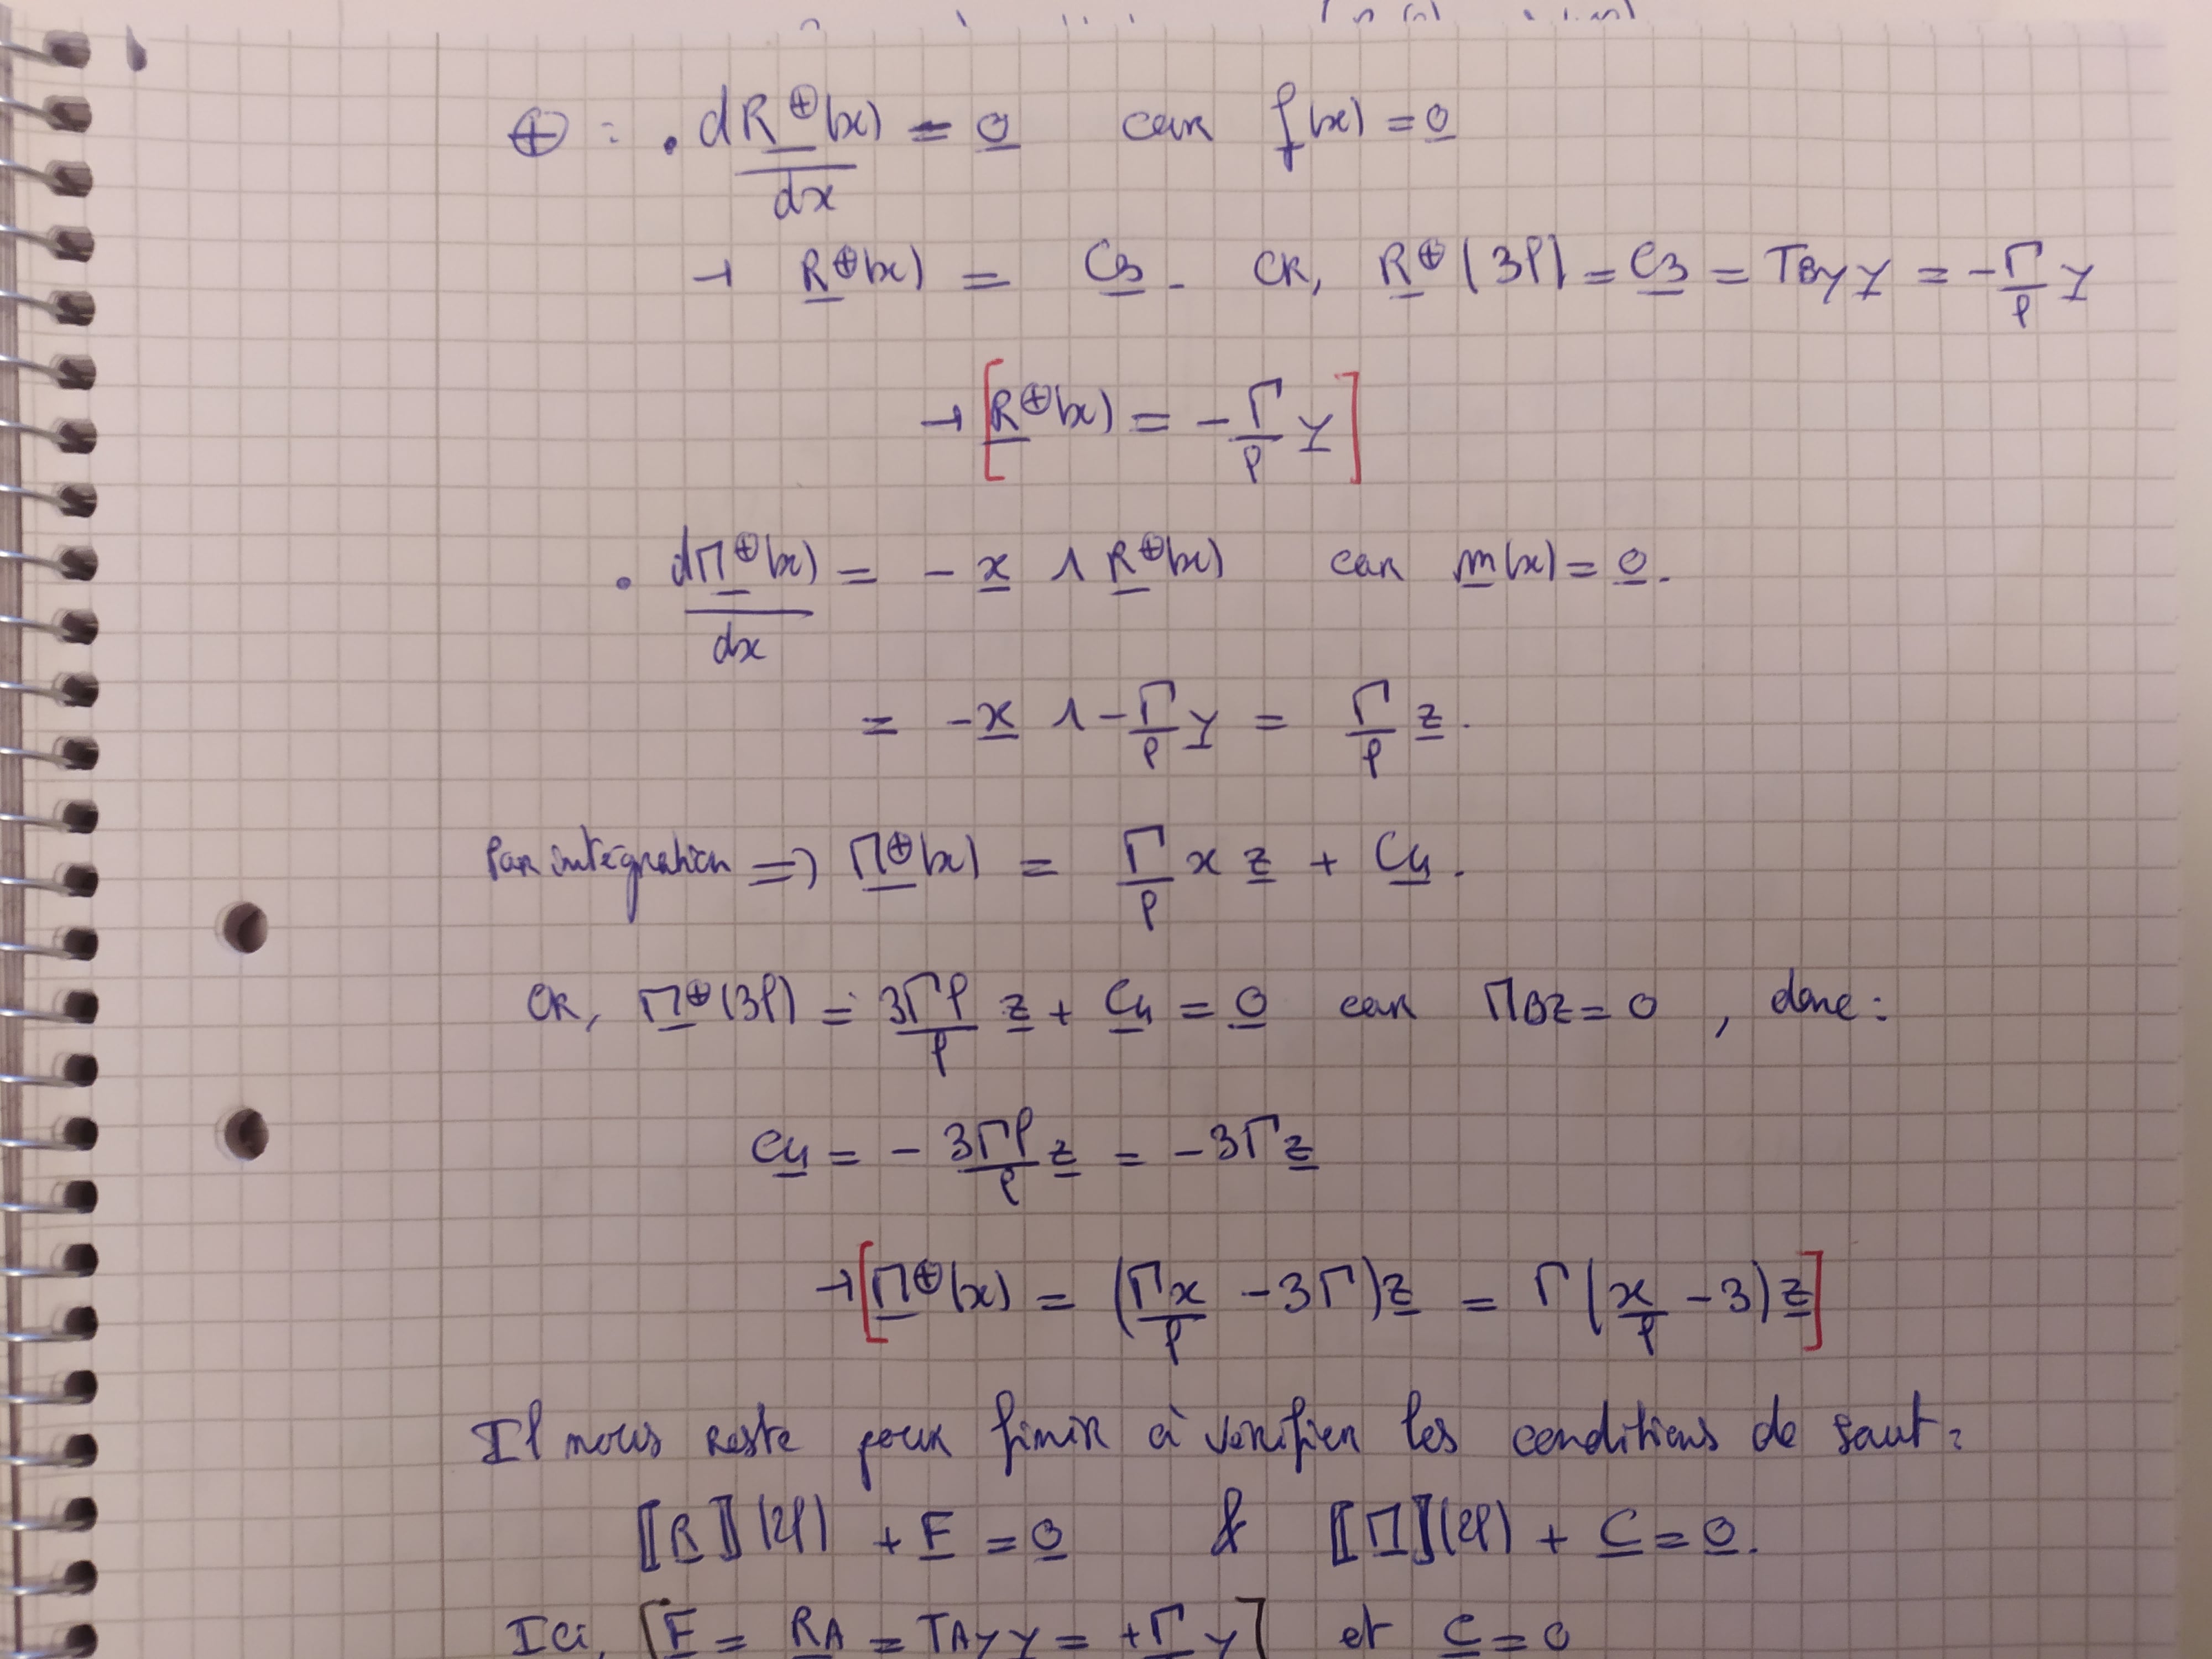 ⊕ : • dR⊕(x)/dx = 0 car f(x) = 0
→ R⊕(x) = C3. OR, R⊕(3ℓ) = C3 = TBy y = -Γ/ℓ y
→ [R⊕(x) = -Γ/ℓ y]
• dΠ⊕(x)/dx = - x ∧ R⊕(x) car m(x) = 0.
= -x ∧ -Γ/ℓ y = Γ/ℓ z.
Par intégration => Π⊕(x) = Γ/ℓ x z + C4.
OR, Π⊕(3ℓ) = 3Γℓ/ℓ z + C4 = 0 car ΠBz = 0 , donc :
C4 = - 3Γℓ/ℓ z = -3Γz
→ [Π⊕(x) = (Γx/ℓ - 3Γ)z = Γ(x/ℓ - 3)z]
Il nous reste pour finir à vérifier les conditions de saut :
[[R]](2ℓ) + F = 0 & [[Π]](2ℓ) + C = 0.
Ici, [F = RA = TAy y = +Γ y] et C = 0